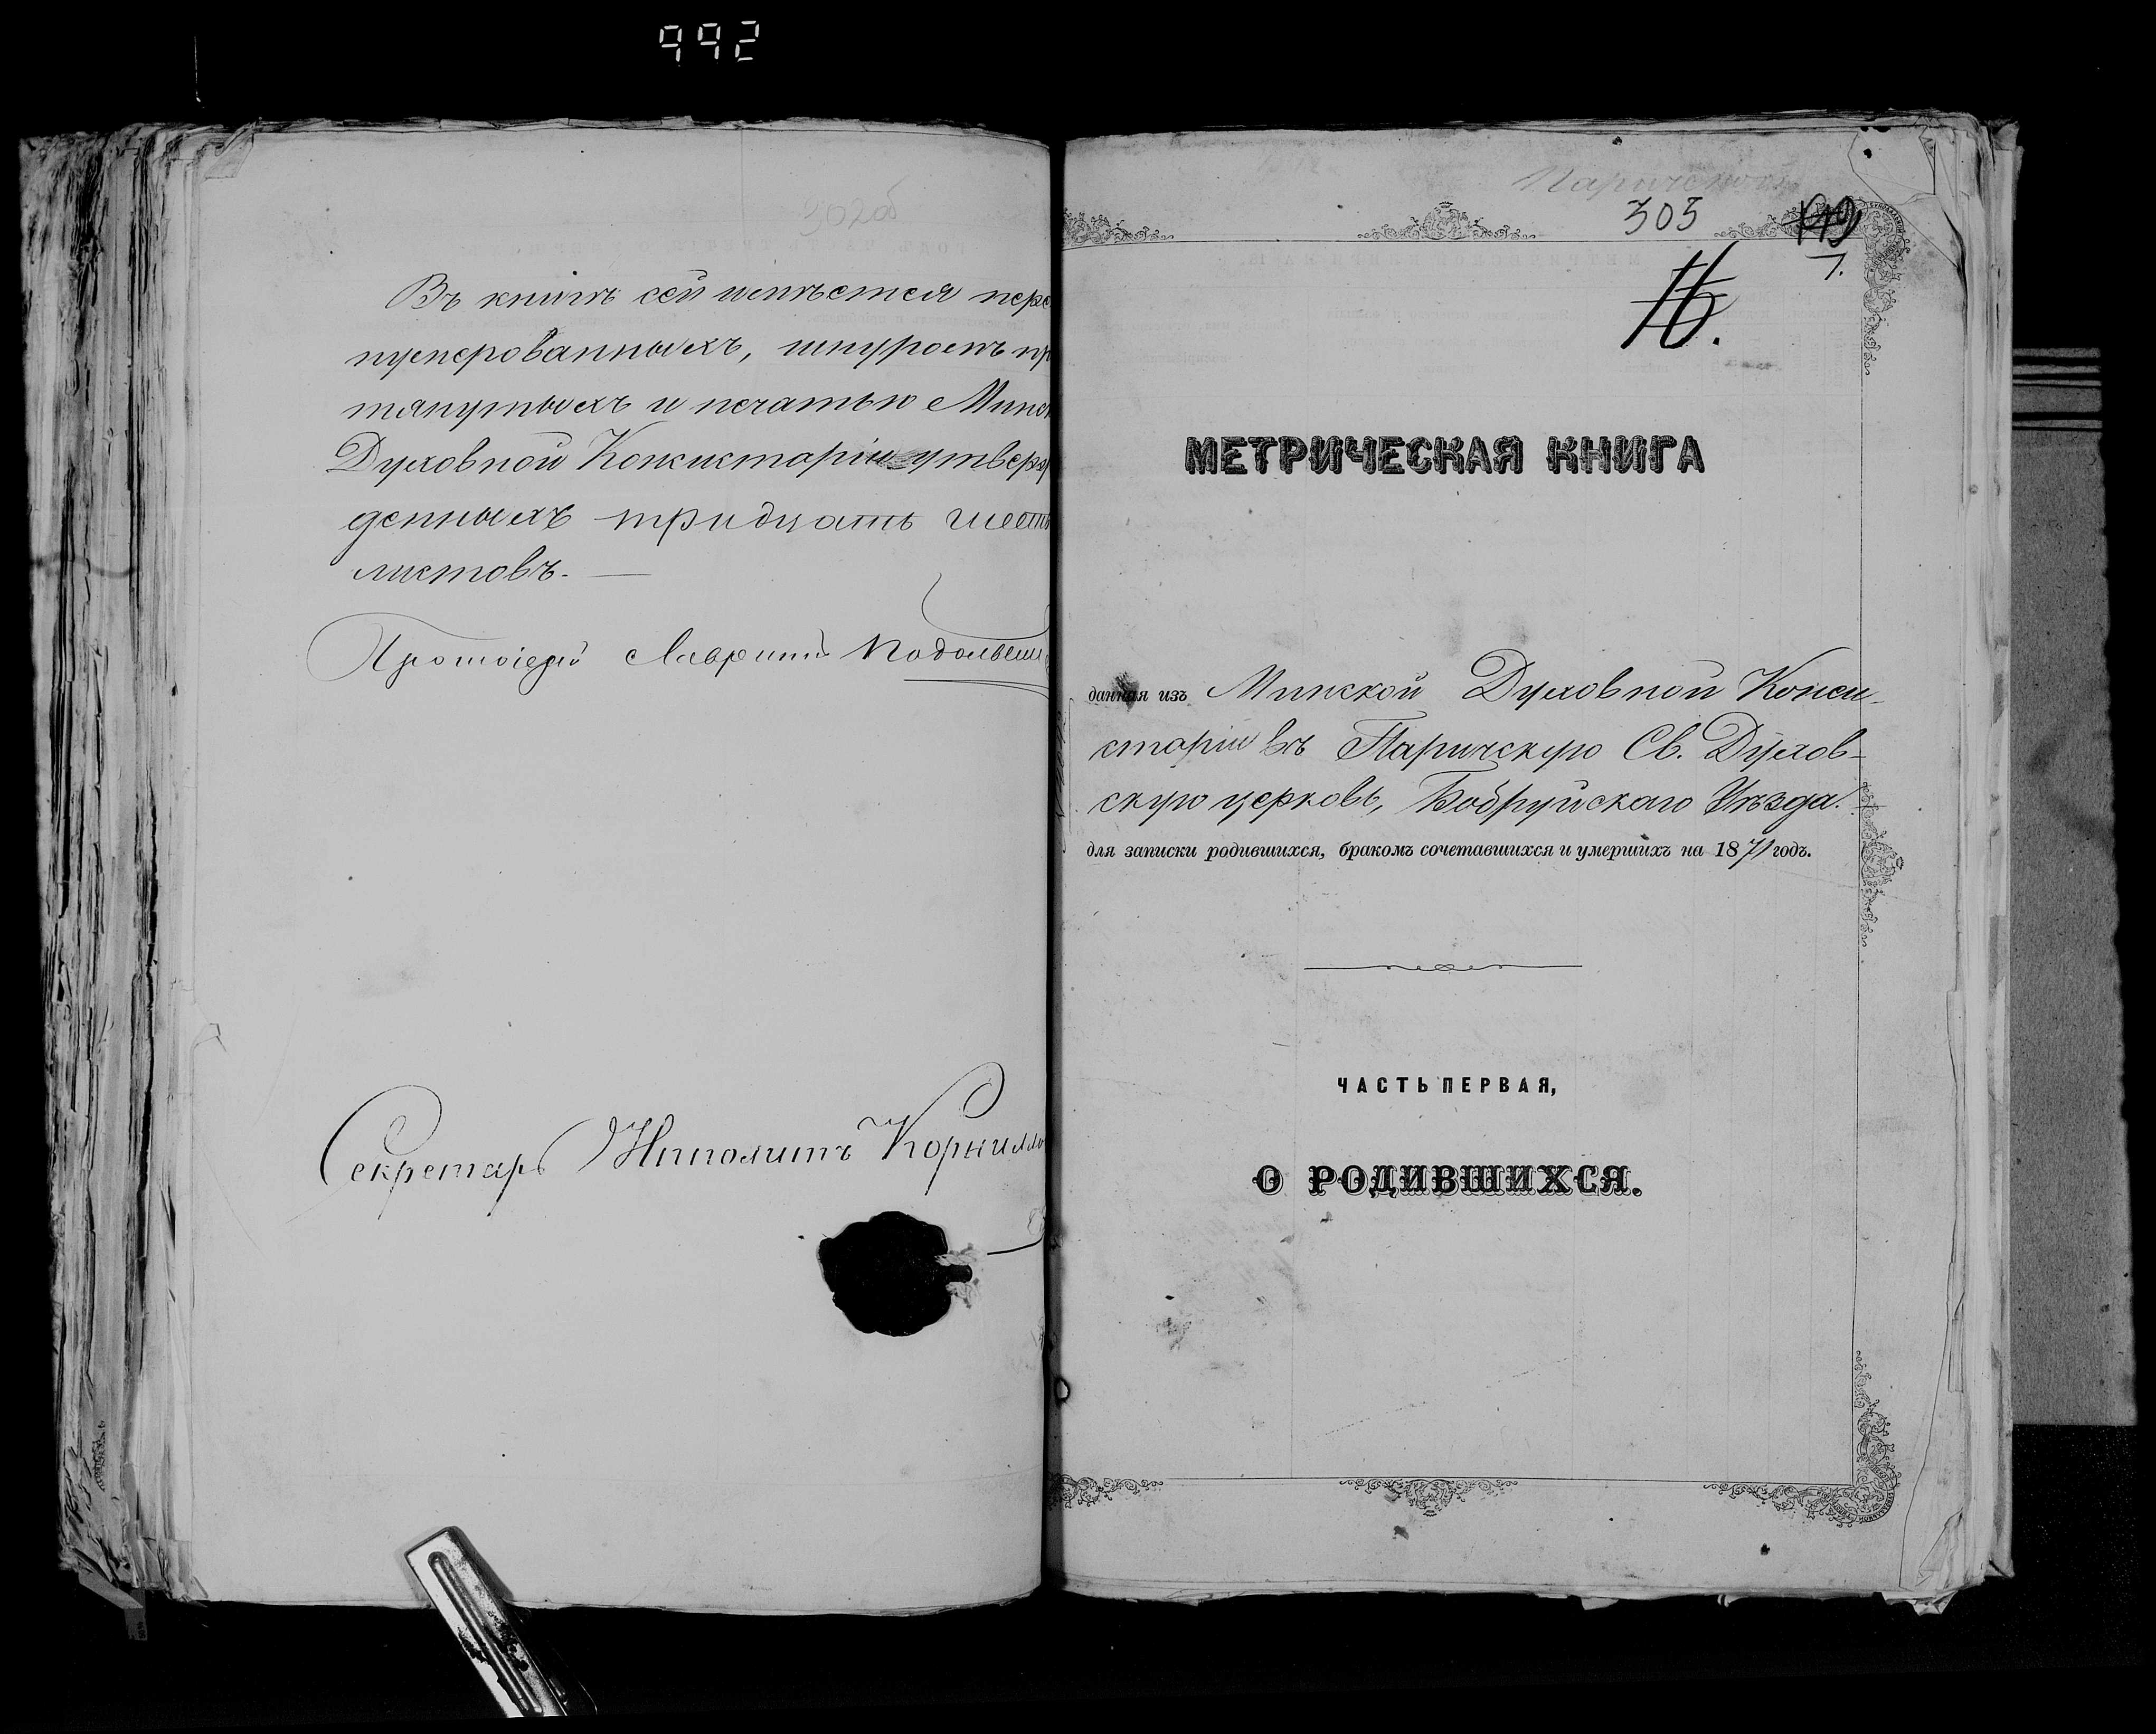 992
302об
Въ книгѣ сей имѣется пере
нумерованныхъ, шнуромъ пр
тянутыхъ и печатью Минск
Духовной Консисторіи утверж
денныхъ тридцать шесть
листовъ.
Протоіерей Лаврентій
Секретарь Ипполитъ Корнилло
Паричской
303
7.
16.
МЕТРИЧЕСКАЯ КНИГА
данная изъ Минской Духовной Конси-
сторіи въ Паричскую Св. Духов-
скую церковь, Бобруйскаго Уѣзда.
для записки родившихся, бракомъ сочетавшихся и умершихъ на 1871 годъ.
ЧАСТЬ ПЕРВАЯ,
О РОДИВШИХСЯ.